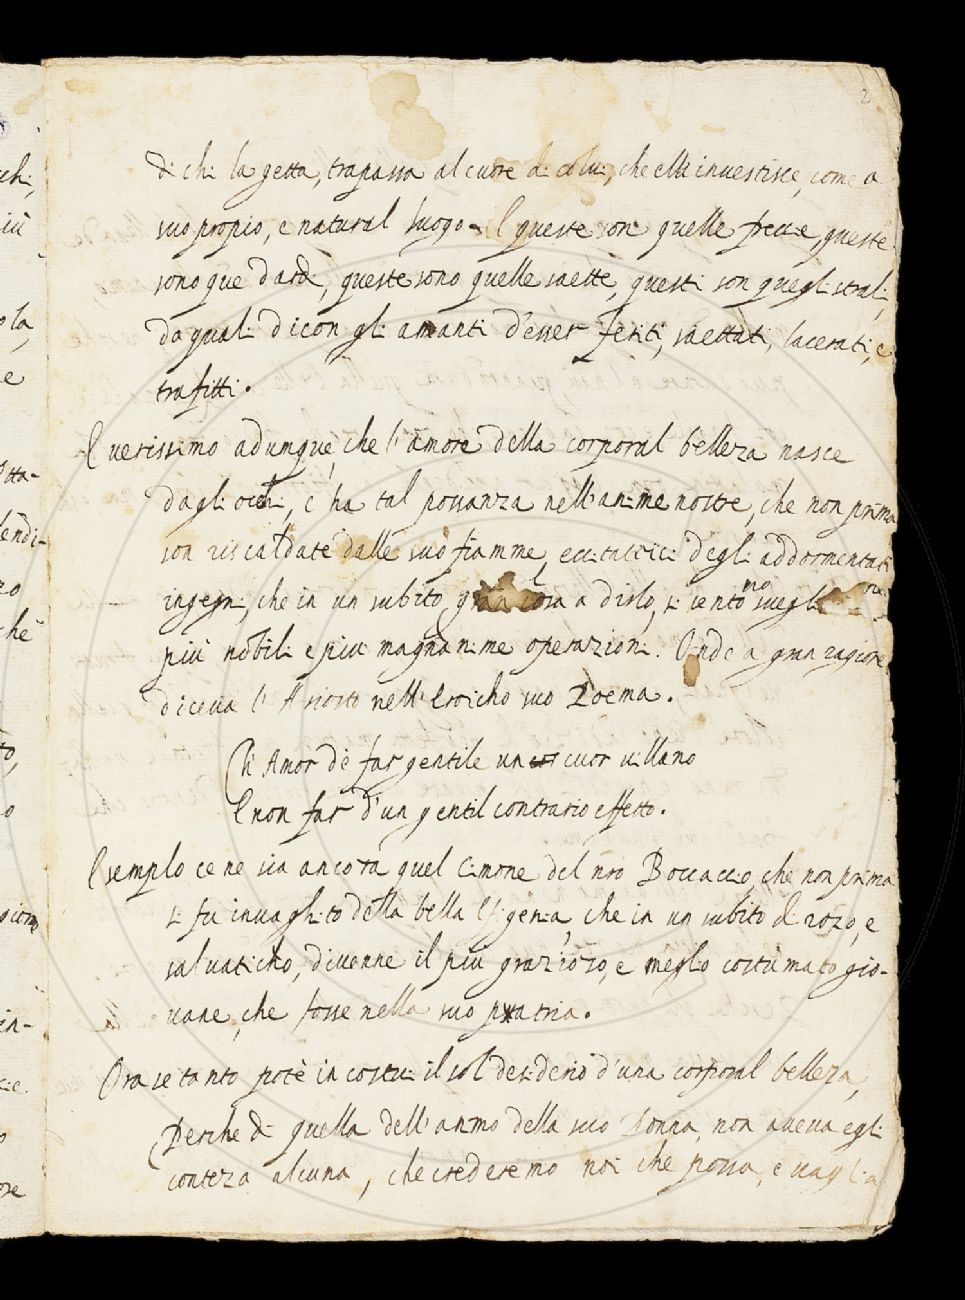 2
di chi la getta, trapassa al cuore di colui, che elli investisce, come a
suo propio, e natural luogo. E queste son quelle frecce, queste
sono que dardi, queste sono quelle saette, questi son quegli strali,
da quali dicon gli amanti d'esser feriti, saettati, lacerati, e
trafitti.
E verissimo adunque, che l'amore della corporal belleza nasce
dagli occhi, e ha tal possanza nell'anime nostre, che non prima
son riscaldate dalle suo fiamme, eccitatrici degli addormentati
ingegni, che in un subito, gran cosa a dirlo, si sentono svegli
più nobili e più magnanime operazioni. Onde a gran ragione
diceva l'Ariosto nell'Eroicho suo Poema.
Ch'Amor de far gentile un cuor villano
E non far d'un gentil contrario effetto.
Esemplo ce ne sia ancora quel Cimone del nro Boccaccio, che non prima
si fu invaghito della bella Efigenia, che in un subito di rozo, e
salvaticho, divenne il più grazioso, e meglio costumato gio-
vane, che fosse nella suo patria.
Ora se tanto potè in costui il sol desiderio d'una corporal belleza,
Perche di quella dell'animo della suo Donna, non aveva egli
conteza alcuna, che crederemo noi che possa, e vaglia